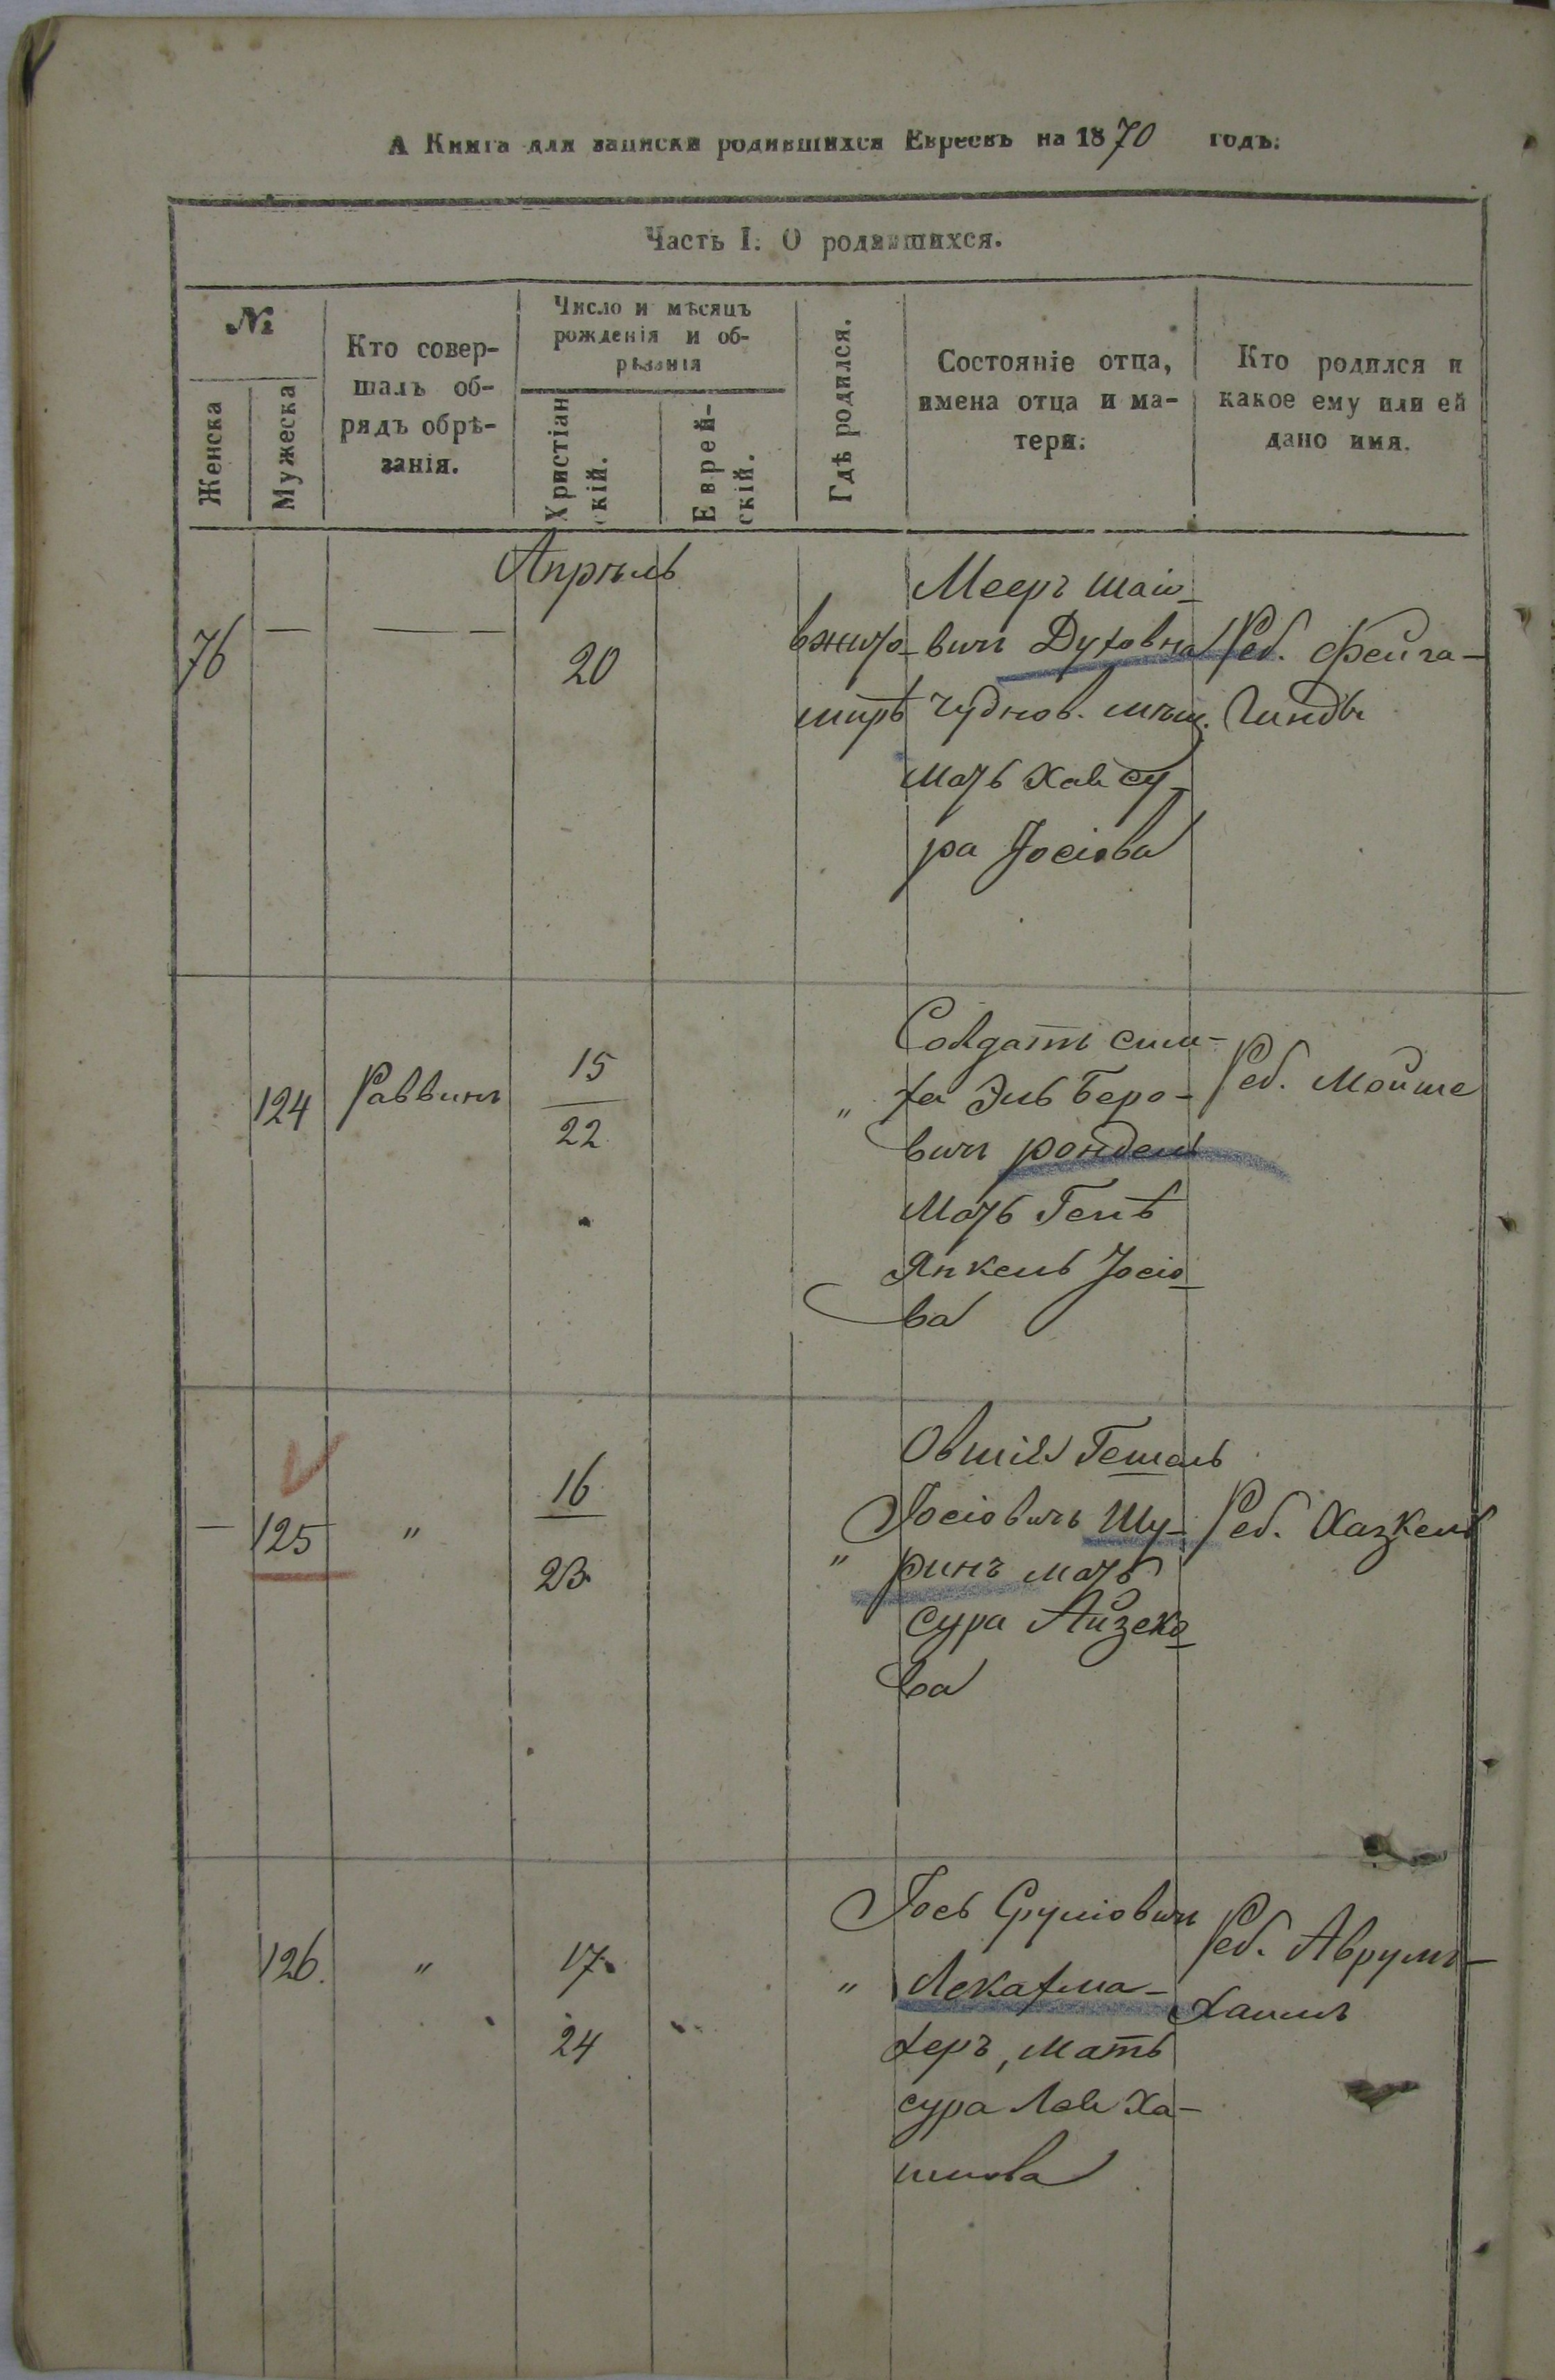 А Книга для записки родившихся Евреевъ на 1870 годъ.
Часть I. О родившихся.
№
Женска
Мужеска
Кто совер-
шалъ об-
рядъ обрѣ-
занія.
Число и мѣсяцъ
рожденія и об-
рѣзанія
Христіан
скій.
Еврей-
скій.
Гдѣ родился.
Состояніе отца,
имена отца и ма-
тери.
Кто родился и
какое ему или ей
дано имя.
Апрѣль
76 — — — 20
вжито-
мирѣ
Мееръ Шаіо-
вичъ Духовна
чуднов. мѣщ.
мать Хая Су-
ра Іосіова
Реб. Фейга-
Гинда
124 Раввинъ 15
22
"
Солдатъ Сим-
ха Эль Беро-
вичъ Рондель
Мать Гепѣ
Янкель Іосіо-
ва
Реб. Мойше
— 125 " 16
23
"
Овшія Гешель
Іосіовичъ Шу-
ринъ мать
Сура Айзеко-
ва
Реб. Хазкель
126. " 17
24
"
Іось Сруліовичъ
Лекахма-
херъ, мать
Сура Лея Ха-
имова
Реб. Аврумъ-
Хаимъ